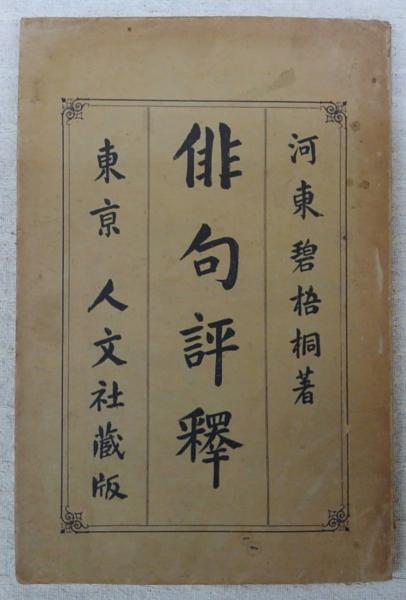 河東碧梧桐著
俳句評釋
東京 人文社藏版